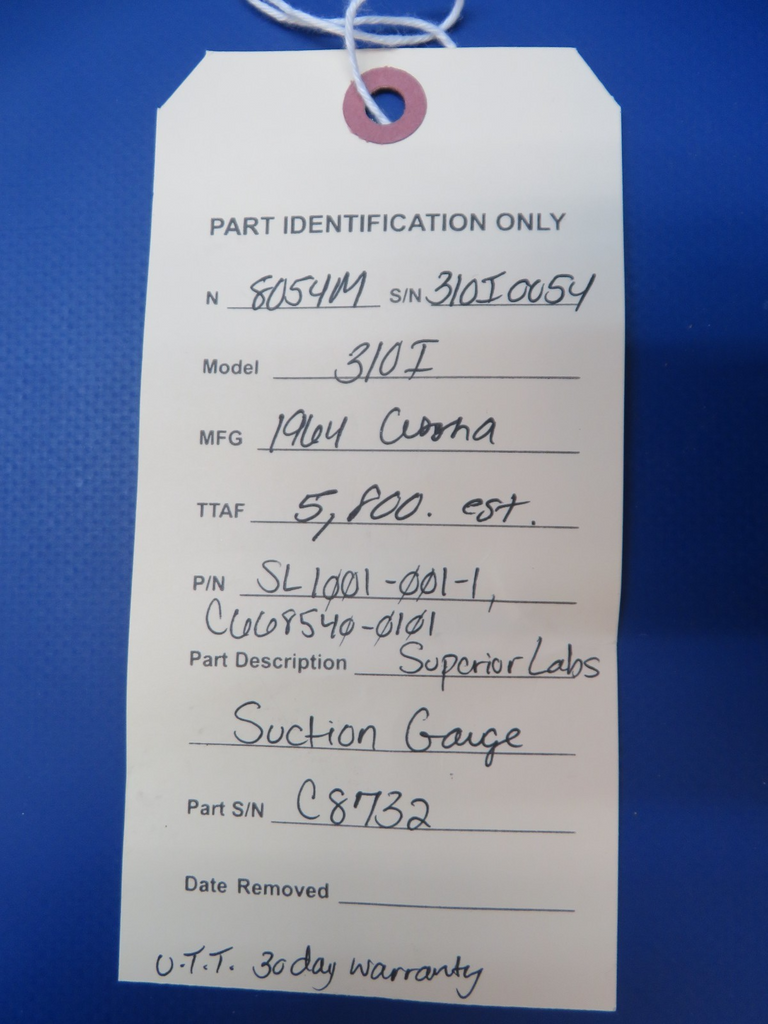 PART IDENTIFICATION ONLY
N 8054M S/N 310I0054
Model 310I
MFG 1964 Cessna
TTAF 5,800. est.
P/N SL1001-001-1,
C668540-0101
Part Description Superior Labs
Suction Gauge
Part S/N C8732
Date Removed
U.T.T. 30 day warranty